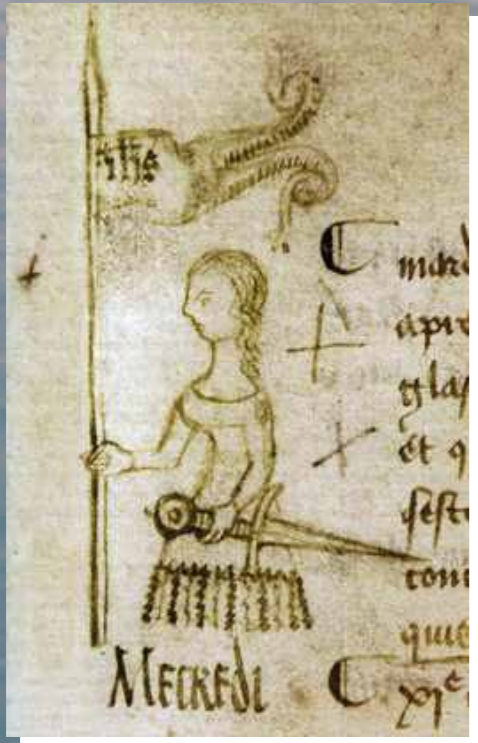 ihs
mard
apre
glas
et q
sest
tout
quie
Mecredi
xi^e